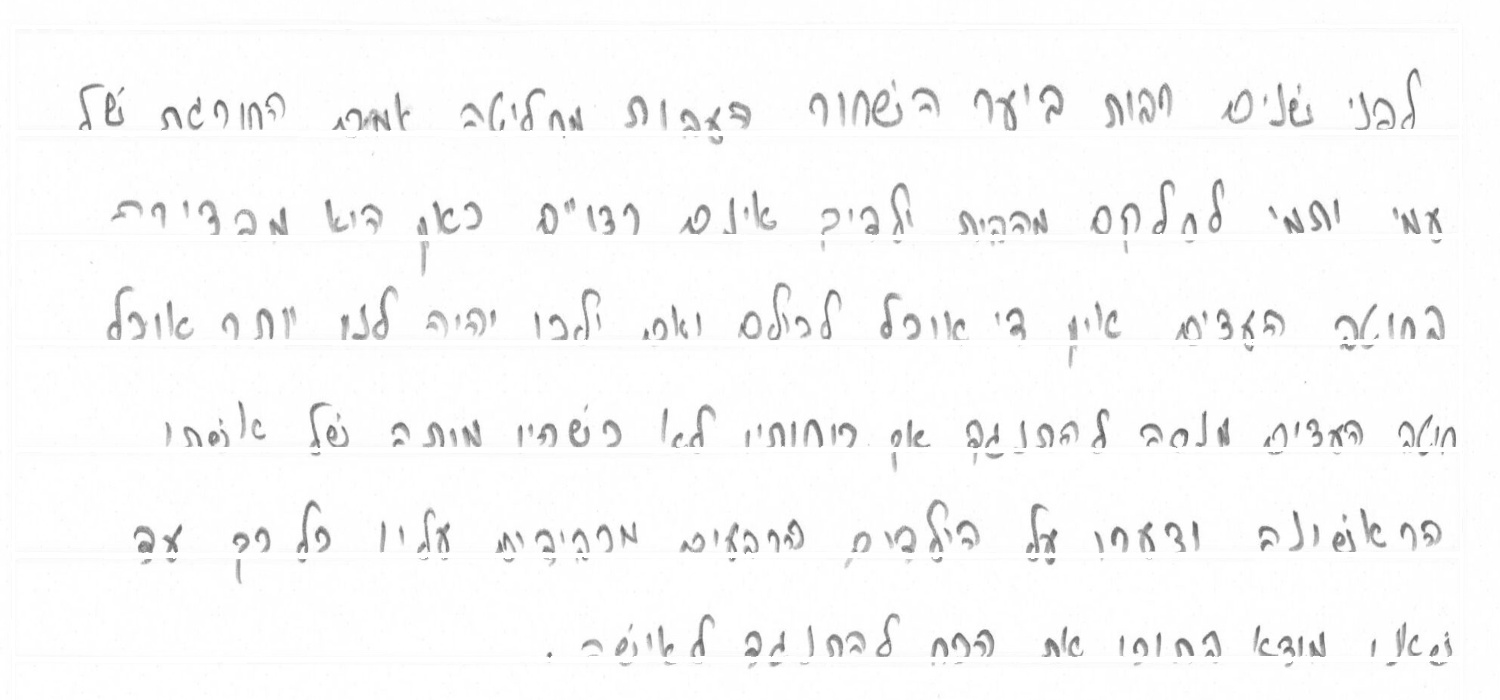 לפני שנים רבות ביער השחור העבות מחליטה אמם החורגת של
עמי ותמי לסלקם מהבית ילביק אינם רצויים כאן היא מבדירה
בחוטב העצים אין די אוכל לכולם ואם ילכו יהיה לנו יותר אוכל
חוטב העצים מנסה להתנגד אף כוחותיו לא כשהיו מותה של אישתו
הראשונה וצערו על הילדים הרבעים מכבידים עליו כל כך עד
שאינו מוצא בתוכו את הכח להתנגד לאישה.